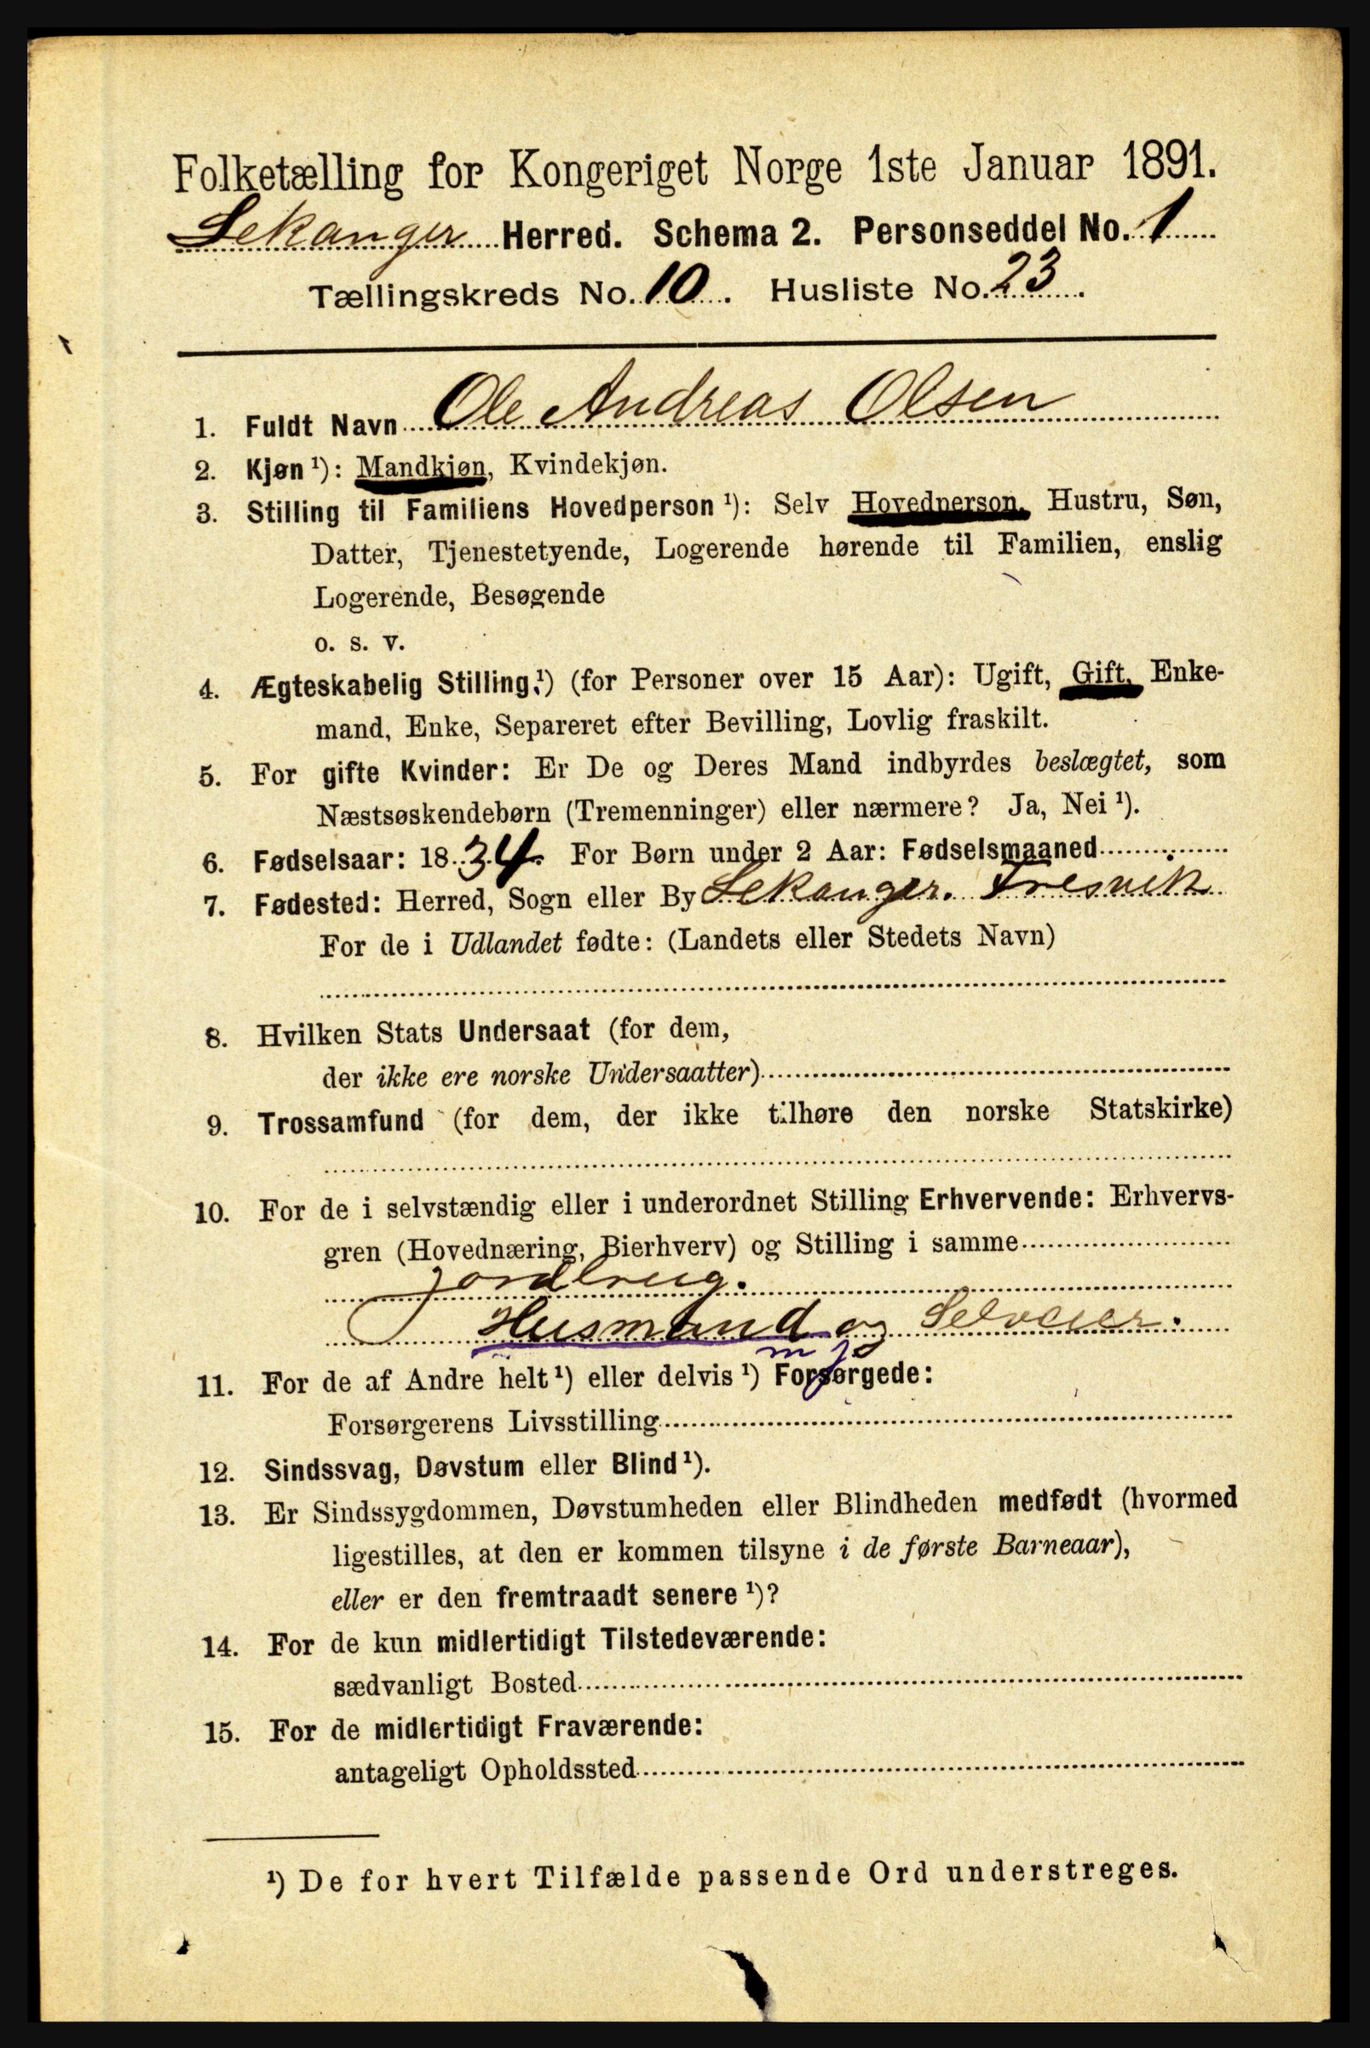 Folketælling for Kongeriget Norge 1ste Januar 1891.
Lekanger Herred. Schema 2. Personseddel No. 1
Tællingskreds No. 10. Husliste No. 23.
1. Fuldt Navn Ole Andreas Olsen
2. Kjøn ¹): Mandkjøn, Kvindekjøn.
3. Stilling til Familiens Hovedperson ¹): Selv Hovedperson, Hustru, Søn,
Datter, Tjenestetyende, Logerende hørende til Familien, enslig
Logerende, Besøgende
o. s. v.
4. Ægteskabelig Stilling.¹) (for Personer over 15 Aar): Ugift, Gift, Enke-
mand, Enke, Separeret efter Bevilling, Lovlig fraskilt.
5. For gifte Kvinder: Er De og Deres Mand indbyrdes beslægtet, som
Næstsøskendebørn (Tremenninger) eller nærmere? Ja, Nei ¹).
6. Fødselsaar: 1834. For Børn under 2 Aar: Fødselsmaaned
7. Fødested: Herred, Sogn eller By Lekanger. Fresvik
For de i Udlandet fødte: (Landets eller Stedets Navn)
8. Hvilken Stats Undersaat (for dem,
der ikke ere norske Undersaatter)
9. Trossamfund (for dem, der ikke tilhøre den norske Statskirke)
10. For de i selvstændig eller i underordnet Stilling Erhvervende: Erhvervs-
gren (Hovednæring, Bierhverv) og Stilling i samme
Jordbrug.
Husmand og Selveier.
m j
11. For de af Andre helt ¹) eller delvis ¹) Forsørgede:
Forsørgerens Livsstilling
12. Sindssvag, Døvstum eller Blind ¹).
13. Er Sindssygdommen, Døvstumheden eller Blindheden medfødt (hvormed
ligestilles, at den er kommen tilsyne i de første Barneaar),
eller er den fremtraadt senere ¹)?
14. For de kun midlertidigt Tilstedeværende:
sædvanligt Bosted
15. For de midlertidigt Fraværende:
antageligt Opholdssted
¹) De for hvert Tilfælde passende Ord understreges.